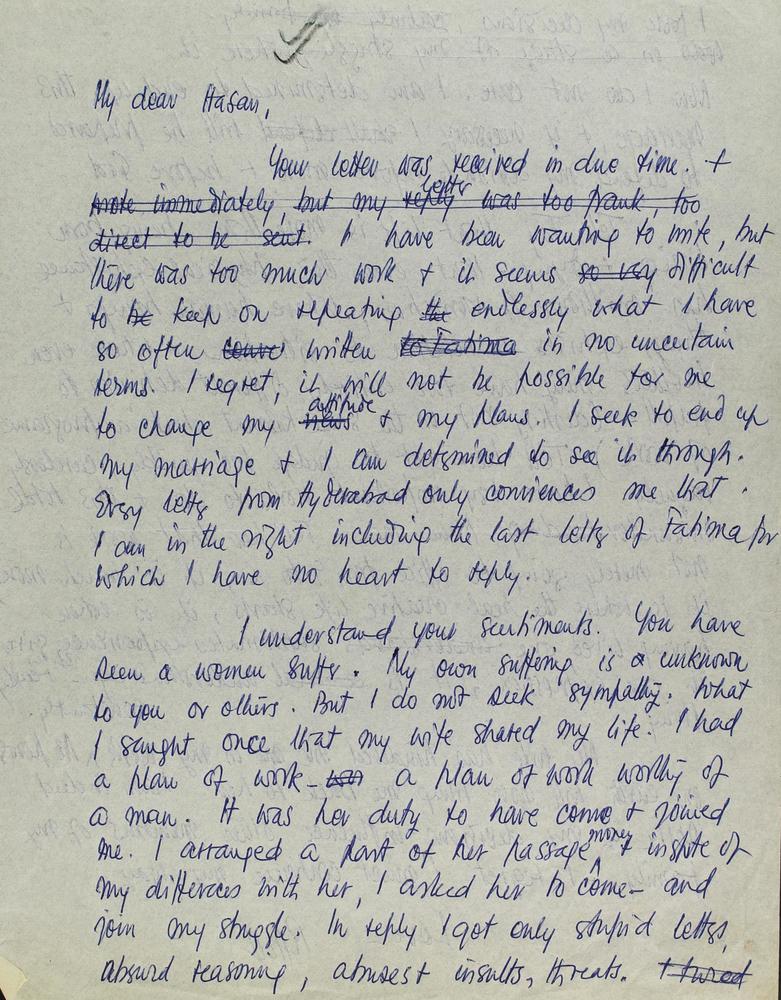 My dear Hasan,
Your letter was received in due time. I
wrote immediately, but my reply letter was too frank, too
direct to be sent. I have been wanting to write, but
there was too much work + it seems so very difficult
to be keep on repeating the endlessly what I have
so often written to Fatima in no uncertain
terms. I regret, it will not be possible for me
to change my views attitude + my plans. I seek to end up
my marriage + I am determined to see it through.
Every letter from Hyderabad only conviences me that
I am in the right including the last letter of Fatima for
which I have no heart to reply.
I understand your sentiments. You have
seen a women suffer. My own suffering is a unknown
to you or others. But I do not seek sympathy. What
I saught once that my wife shared my life. I had
a plan of work - was a plan of work worthy of
a man. It was her duty to have come + joined
me. I arranged a part of her passage money + inspite of
my differences with her, I asked her to come - and
join my struggle. In reply I got only stupid letters,
absurd reasoning, abuses + insults, threats. I